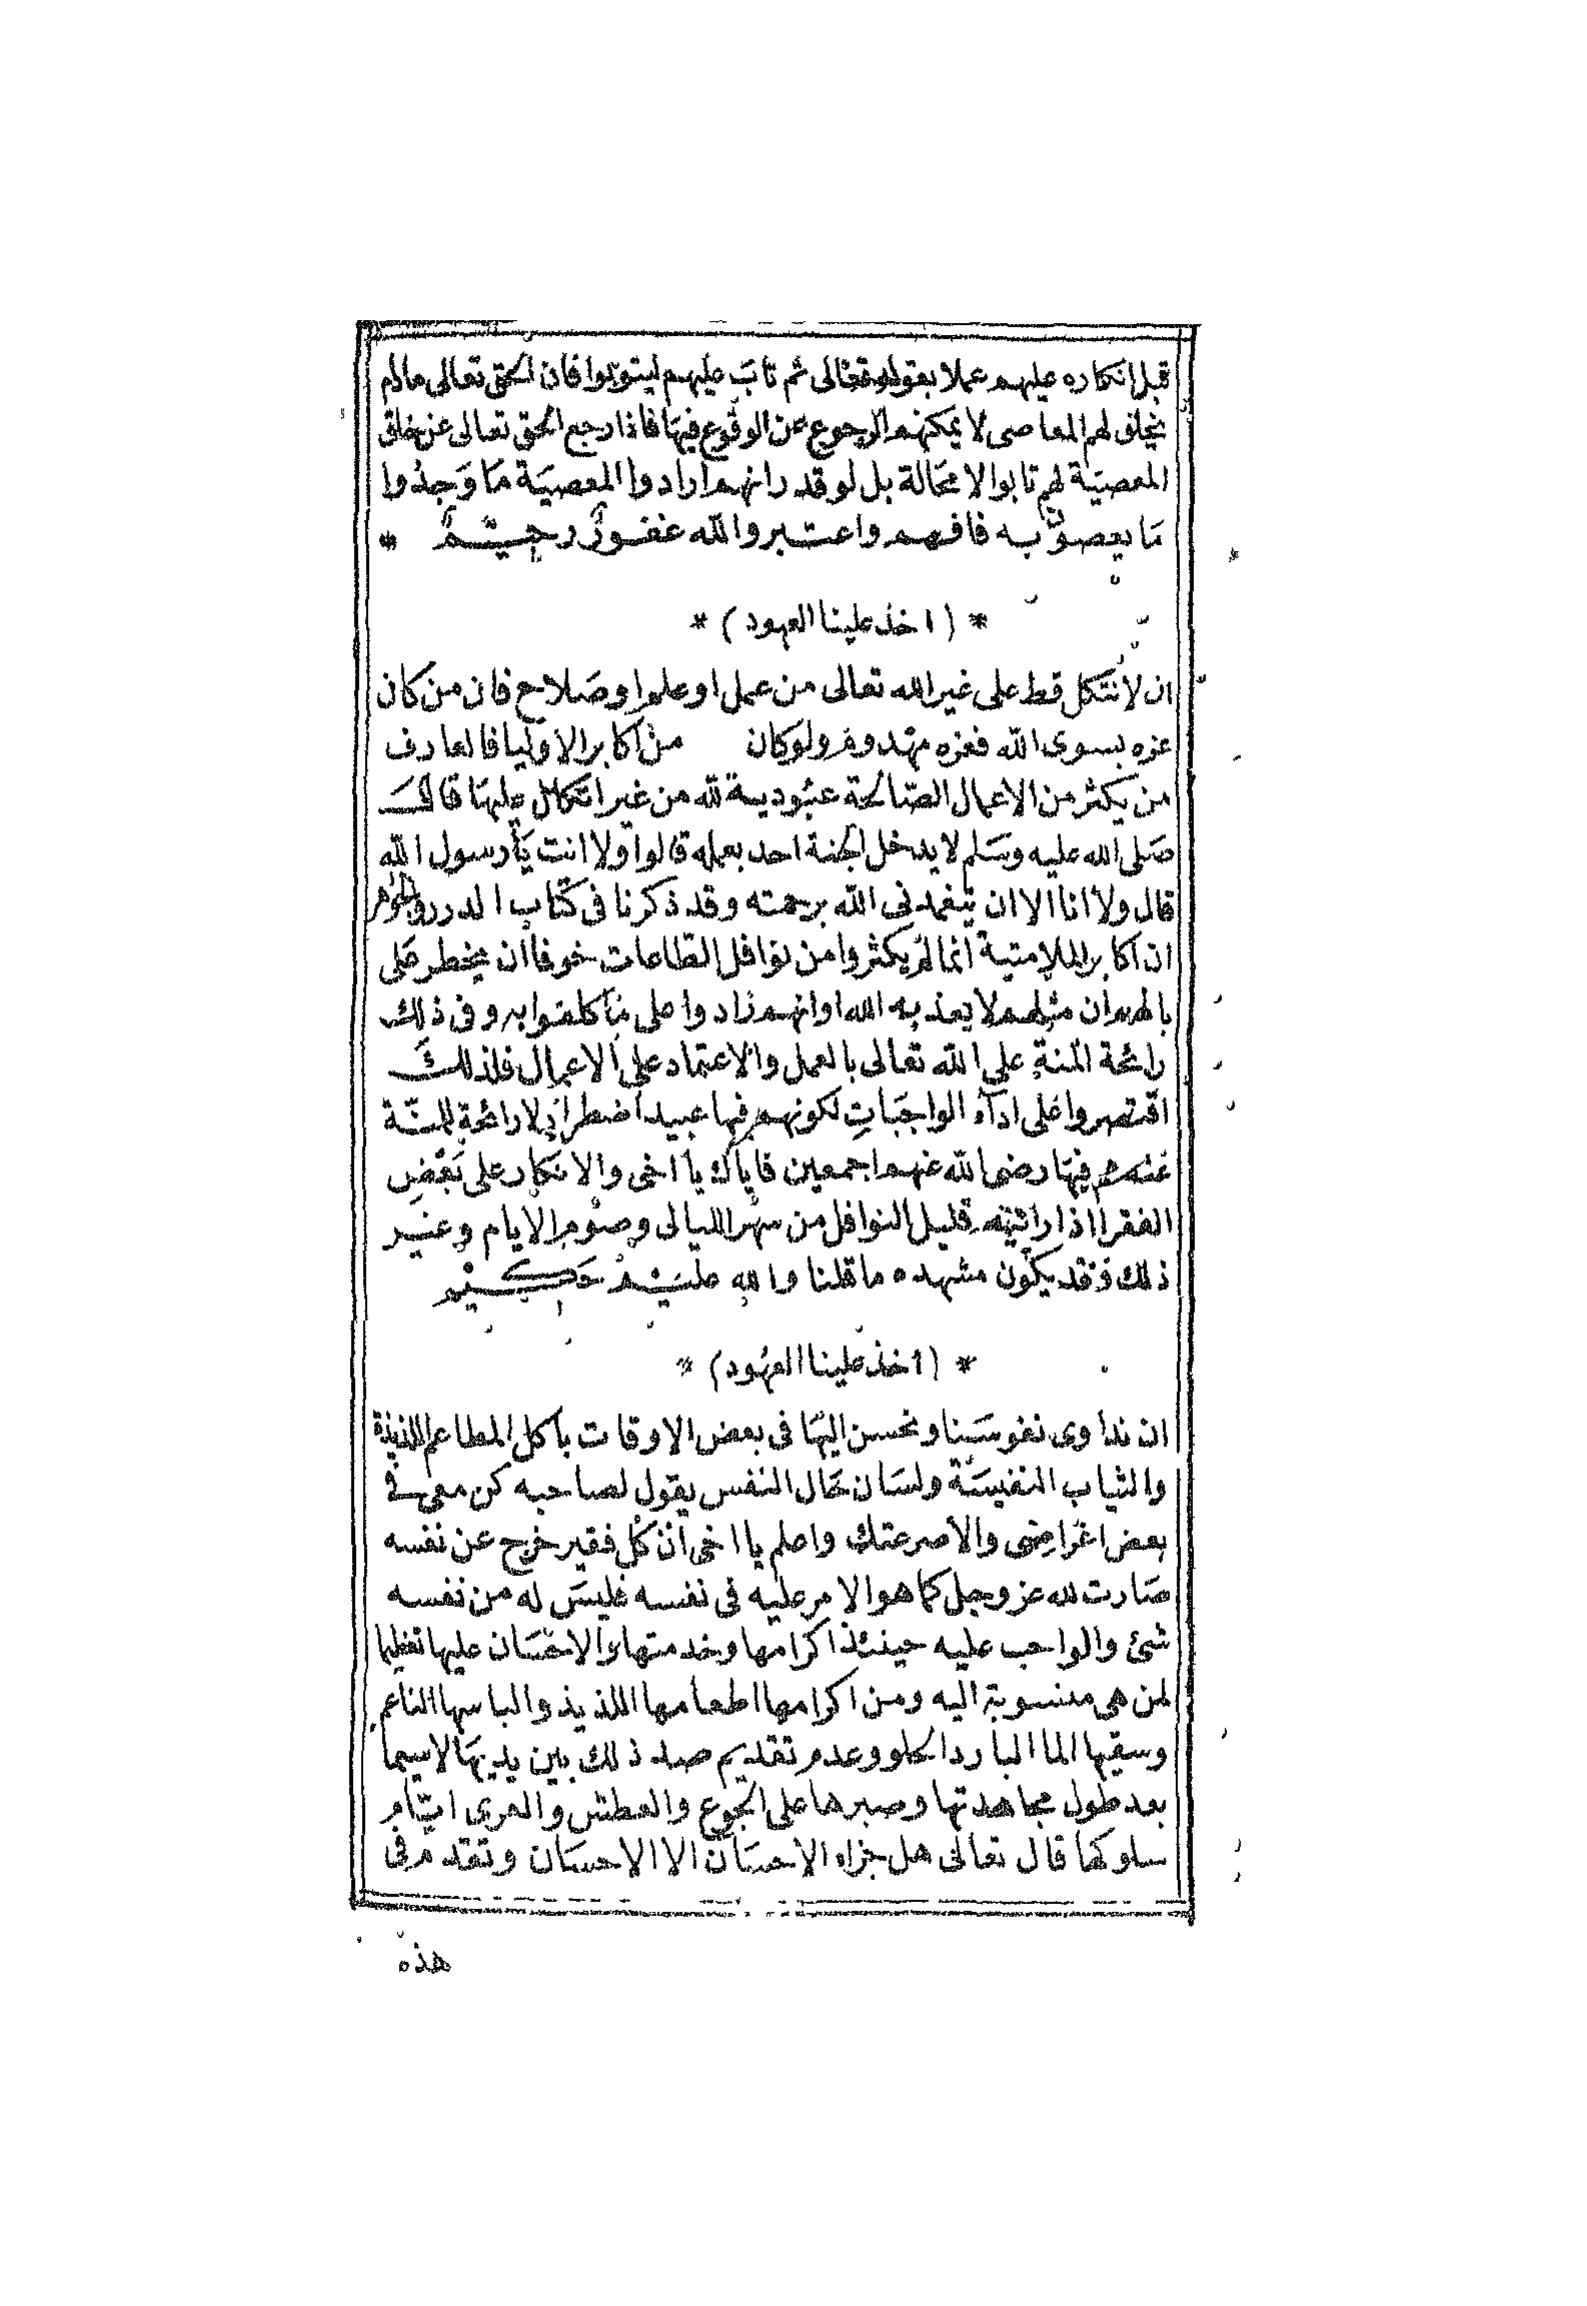 قبل انكاره عليهم عملا بقوله تعالى ثم تاب عليهم ليتوبوا فان الحق تعالى مادام
يخلق لهم المعاصى لا يمكنهم الرجوع عن الوقوع فيها فاذا رجع الحق تعالى عن خلق
المعصية لهم تابوا لا محالة بل لو قدر انهم ارادوا المعصية ما وجدوا
ما يعصوا به فافهم واعتبر والله غفور رحيم *
* ( اخذ علينا العهود ) *
ان لا نتكل قط على غير الله تعالى من عمل او علم او صلاح فان من كان
عزه بسوى الله فعزه مهدوم ولو كان من اكابر الاوليا فالعارف
من يكثر من الاعمال الصالحة عبودية لله من غير اتكال عليها قال
صلى الله عليه وسلم لا يدخل الجنة احد بعمله قالوا ولا انت يا رسول الله
قال ولا انا الا ان يتغمدنى الله برحمته وقد ذكرنا فى كتاب الدرر والجوهر
ان اكابر الملامتية انما لم يكثروا من نوافل الطاعات خوفا ان يخطر على
بالهم ان مثلهم لا يعذبه الله او انهم زادوا على ما كلفوا به وفى ذلك
رائحة المنة على الله تعالى بالعمل والاعتماد على الاعمال فلذلك
اقتصروا على ادآء الواجبات لكونهم فيها عبيد اضطرار لا رائحة للمنة
عندهم فيها رضى الله عنهم اجمعين فاياك يا اخى والانكار على بعض
الفقرا اذا رايته قليل النوافل من سهر الليالى وصوم الايام وغير
ذلك فقد يكون مشهده ما قلنا والله عليم حكيم
* ( اخذ علينا العهود ) *
ان نداوى نفوسنا ونحسن اليها فى بعض الاوقات باكل المطاعم اللذيذة
والثياب النفيسة ولسان حال النفس يقول لصاحبه كن معى فى
بعض اغراضى والا صرعتك واعلم يا اخى ان كل فقير خرج عن نفسه
صارت لله عز وجل كما هو الامر عليه فى نفسه فليس له من نفسه
شئ والواجب عليه حينئذ اكرامها وخدمتها والاحسان عليها تعظيما
لمن هى منسوبة اليه ومن اكرامها اطعامها اللذيذ والباسها الناعم
وسقيها الما البارد الحلو وعدم تقديم ضد ذلك بين يديها لا سيما
بعد طول مجاهدتها وصبرها على الجوع والعطش والعرى ايام
سلوكها قال تعالى هل جزاء الاحسان الا الاحسان وتقدم فى
هذه